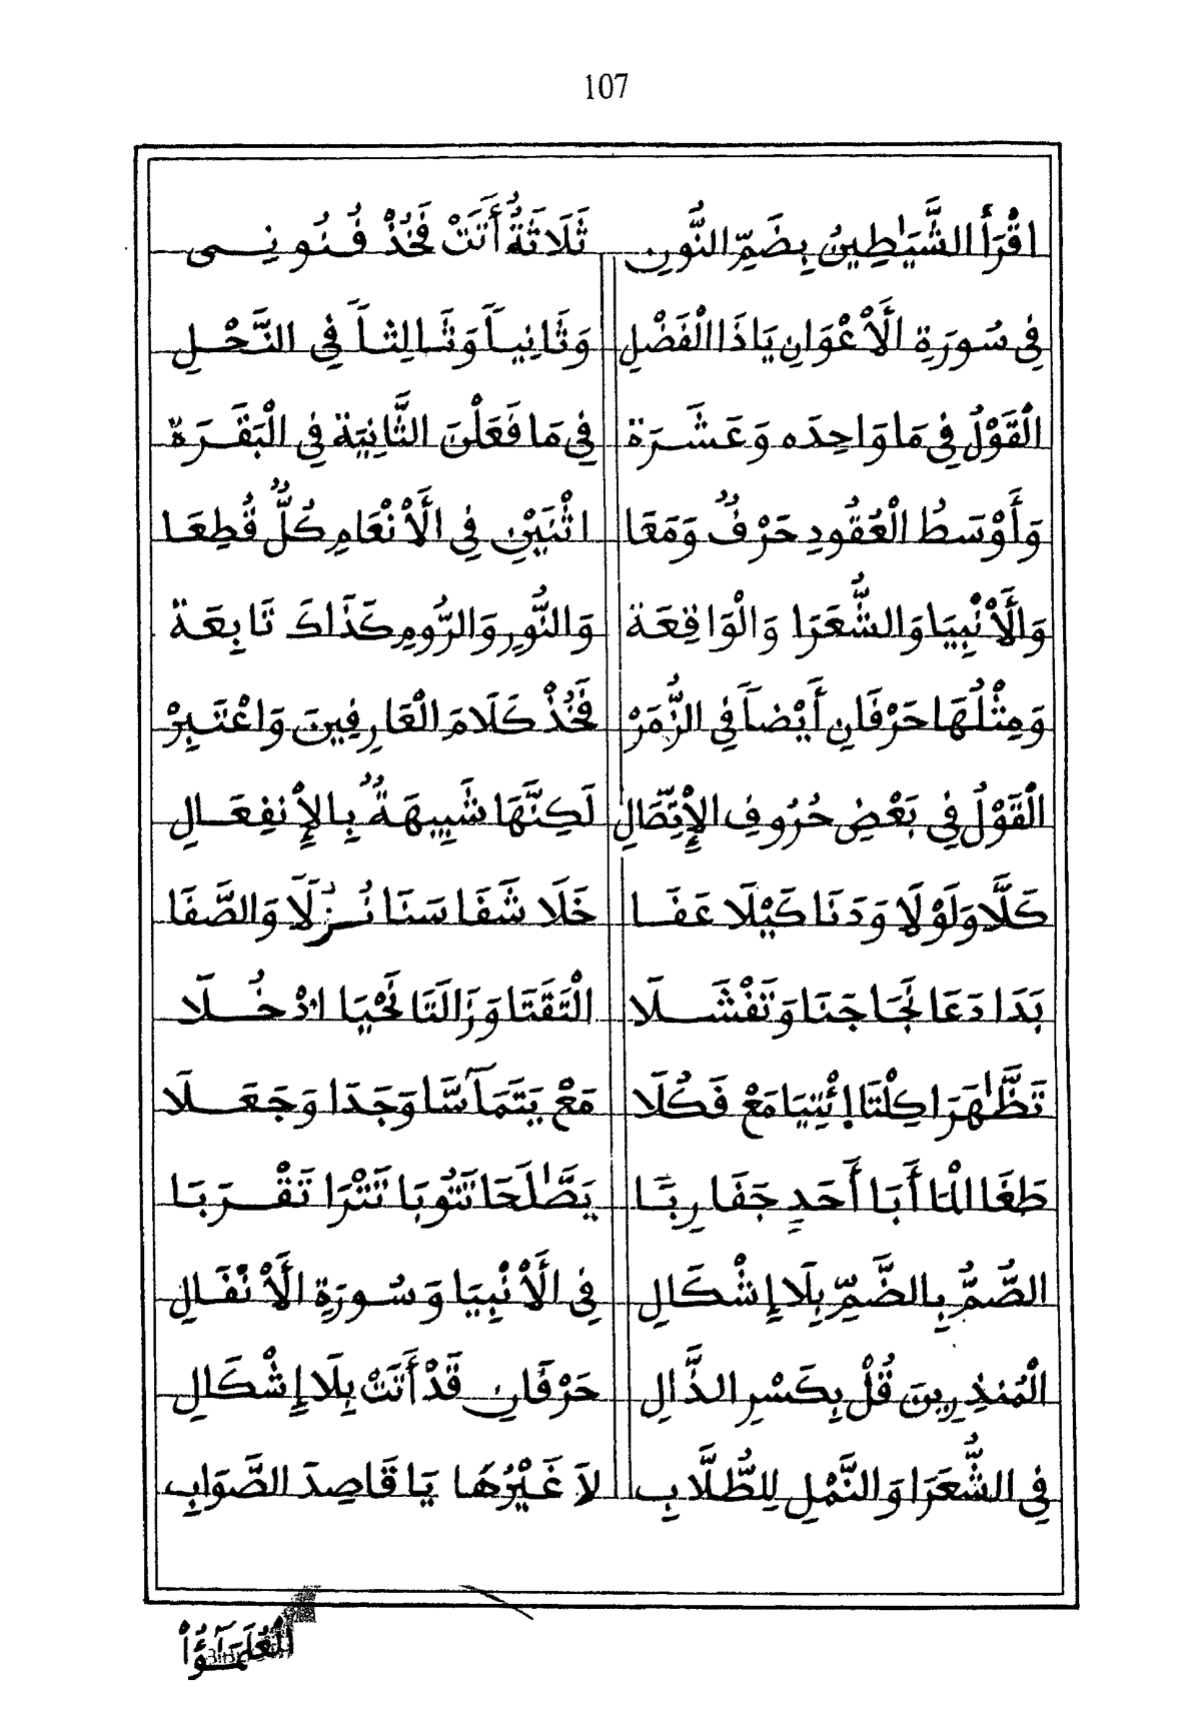 107
اقْرَأَ الشَّيَٰطِينُ بِضَمِّ النُّونِ ثَلَاثَةٌ أَتَتْ فَخُذْ فُنُونِــى
فِى سُورَةِ الَأعْوَانِ يَاذَا الْفَضْلِ وَثَانِياً وَثَالِثاً فِى النَّحْلِ
الْقَوْلُ فِى مَا وَاحِدَه وَعَشَرَة فِى مَا فَعَلْنَ الثَّانِيَة فِى الْبَقَرَة
وَأَوْسَطُ الْعُقُودِ حَرْفٌ وَمَعَا اثْنَيْنِ فِى الَأنْعَامِ كُلٌّ قُطِعَا
وَالَأنْبِيَا وَالشُّعَرَا وَالْوَاقِعَة وَالنُّورِ وَالرُّومِ كَذَاكَ تَابِعَة
وَمِثْلُهَا حَرْفَانِ أَيْضاً فِى الزُّمَرْ فَخُذْ كَلَامَ الْعَارِفِينَ وَاعْتَبِرْ
الْقَوْلُ فِى بَعْضِ حُرُوفِ الإِتِّصَالِ لَكِنَّهَا شَبِيهَةٌ بِالإِنْفِعَالِ
كَلَّا وَلَوْلَا وَدَنَا كَيْلَا عَفَا خَلَا شَفَا سَنَا نُزُلَا وَالصَّفَا
بَدَا دَعَا نَجَا جَنَا وَتَفْشَلَا الْتَقَتَا وَزَالَتَا نَحْيَا ادْخُلَا
تَظَّٰهَرَا كِلْتَا اِئْتِيَا مَعْ فَكُلَا مَعْ يَتَمَآسَّا وَجَدَا وَجَعَلَا
طَغَا الْمَا أَبَا أَحَدٍ جَفَا رِبًا يَصَّٰلَحَا تَتُوبَا تَتْرَا تَقْرَبَا
الصُّمُّ بِالضَّمِّ بِلَا إِشْكَالِ فِى الَأنْبِيَا وَسُورَةِ الَأنْفَالِ
الْمُنذِرِينَ قُلْ بِكَسْرِ الذَّالِ حَرْفَانِ قَدْ أَتَتْ بِلَا إِشْكَالِ
فِى الشُّعَرَا وَالنَّمْلِ لِلطُّلَّابِ لاَ غَيْرُهَا يَا قَاصِدَ الصَّوَابِ
الْعُلَمَٰٓؤُاْ